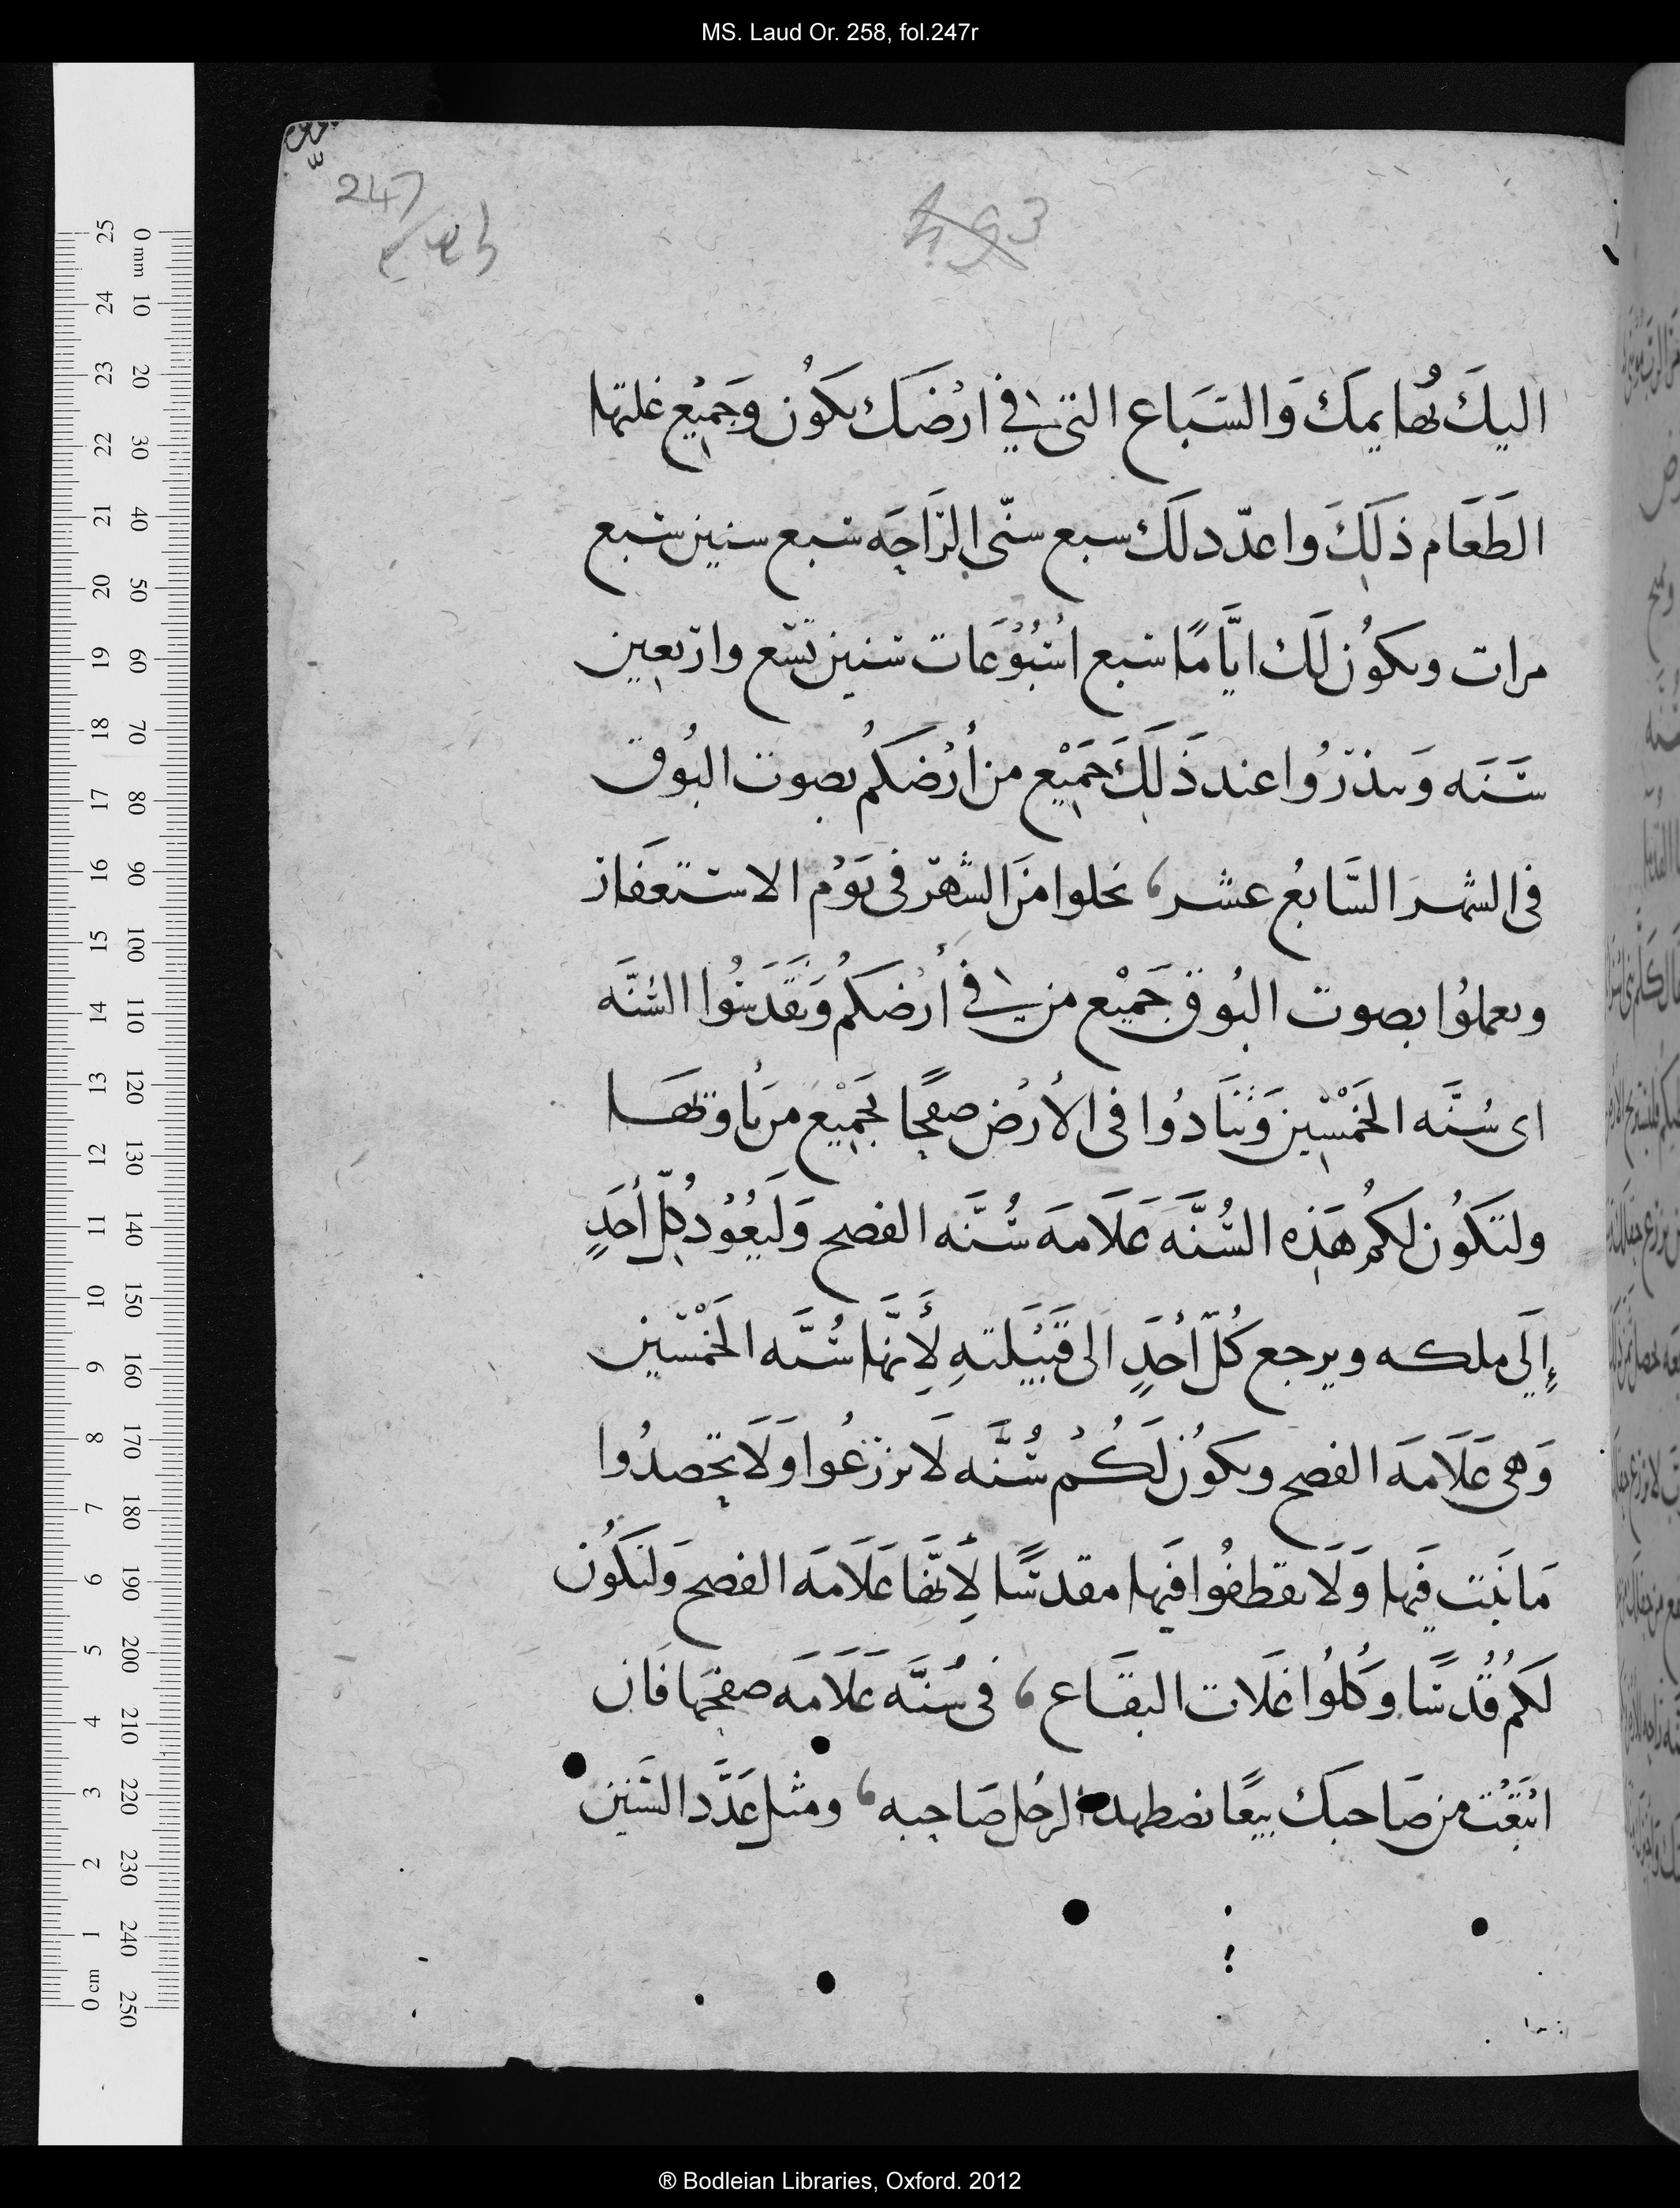 MS. Laud Or. 258, fol.247r
247
اليكَ بُهايمكَ وَالسَبَاع التى في ارْضَك يكوُن وَجَميْع غلتها
الطَعَام ذلَكَ واعدّد لَك سبع سنّى الرَاحَه سبع سنين سبع
مرات ويكوُن لَك ايَّامًا سبع اسْبُوْعَات سنين تسَع واربَعين
سَنَه وَينذرُوا عند ذَلَكَ جَميْع من أرْضكُم بصوت البُوق
فى الشهر السَابعُ عشر، تحلوا منَ الشَهر فى يَوْم الاستعفَار
ويعملُوا بصوت البُوق جَميْع من في أرْضكُم وَتقَدَسُوا السُنَّه
اى سُنَّه الخَمْسين وَتنَادُوا فى الأرْض صفحًا لجَميْع من يأوتهَا
ولتكوُن لكمُ هَذه السُنَّه عَلَامَه سُنَّه الفصح وَلَيعُوْدُ كلّ أحَدٍ
إلَى ملكه ويرجع كُلّ أحَدٍ الى قَبيْلَتهِ لأَنَّها سُنَّه الخَمْسين
وَهى عَلَامَه الفصح ويكوُن لَكُم سُنَّه لَا تزرَعُوا وَلَا تحصدُوا
مَا نَبَت فَيها وَلَا تقطفُوا فَيها مقدسًا لأَنهَّا عَلَامَه الفصح وَلتكوُن
لَكمُ قُدسًا وكُلُوا غَلَات البقَاع، فى سُنَّه عَلَامَه صفحَها فَان
ابتَعْت من صَاحبَك بيعًا نضطهد الرجُل صَاحبه، ومثل عَدَّد السَنين
® Bodleian Libraries, Oxford. 2012